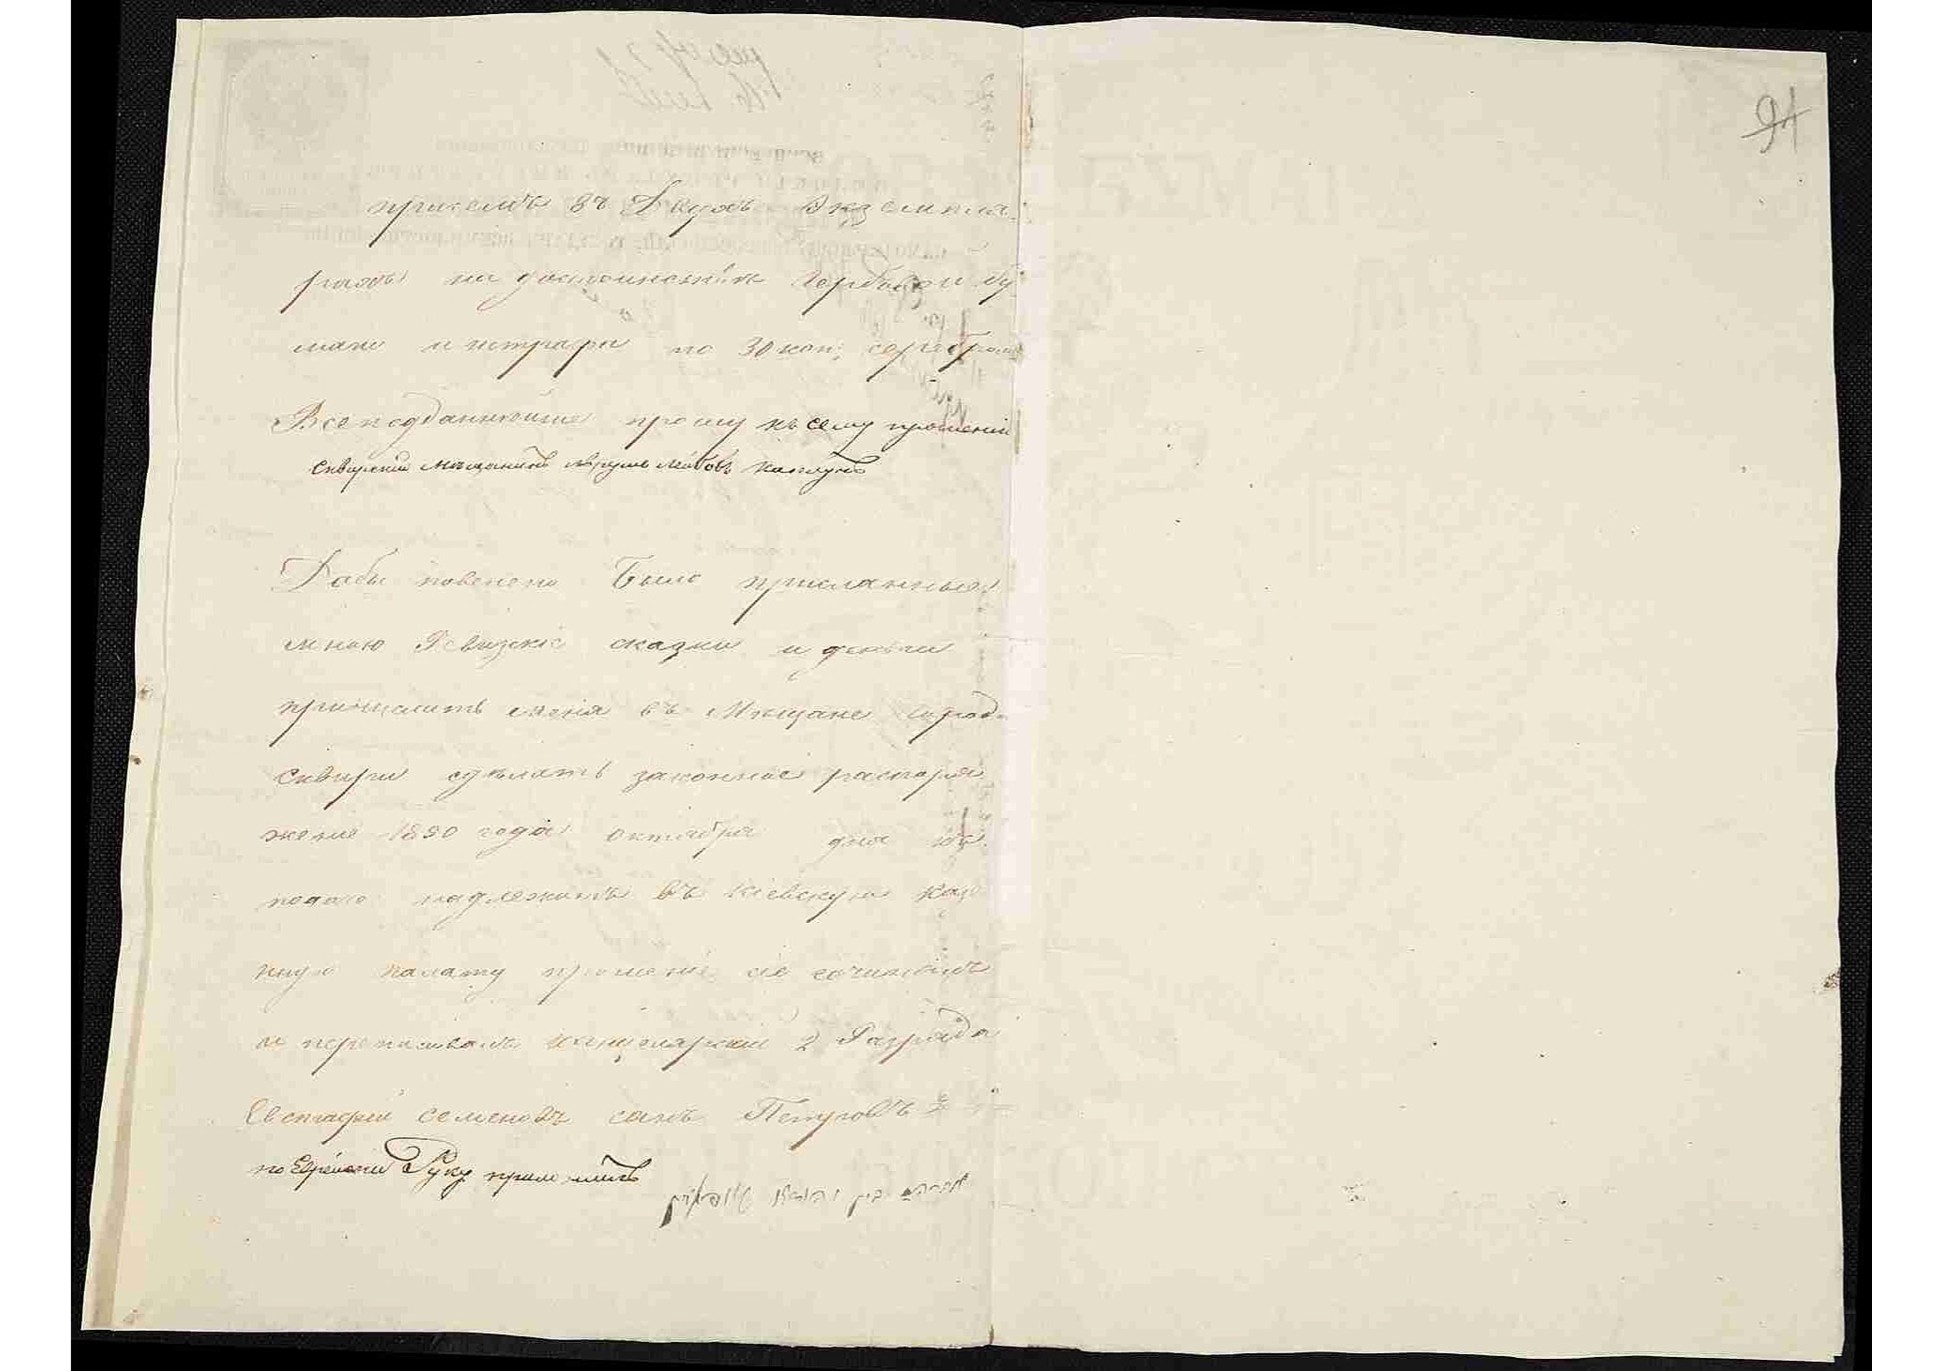 94
прилагаю въ двухъ экземпля-
рахъ на достоинствѣ гербовой бу-
маги и штрафа по 30 коп; серебромъ
Всеподданнѣйше прошу къ сему прошенію
Сквирский мѣщанинъ каплунъ
Дабы повелено было присланныя
мною Ревизскіе сказки и деньги
причислить меня въ Мѣщане город.
Сквири сдѣлать законное распоря
жение 1850 года октября дня
подать надлежитъ въ Кіевскую каз
нную палату прошеніе сіе сочинялъ
и переписывалъ канцелярский 2 Разряда
Евстафий Семеновъ сынъ Петровъ
по Еврейски Руку приложилъ